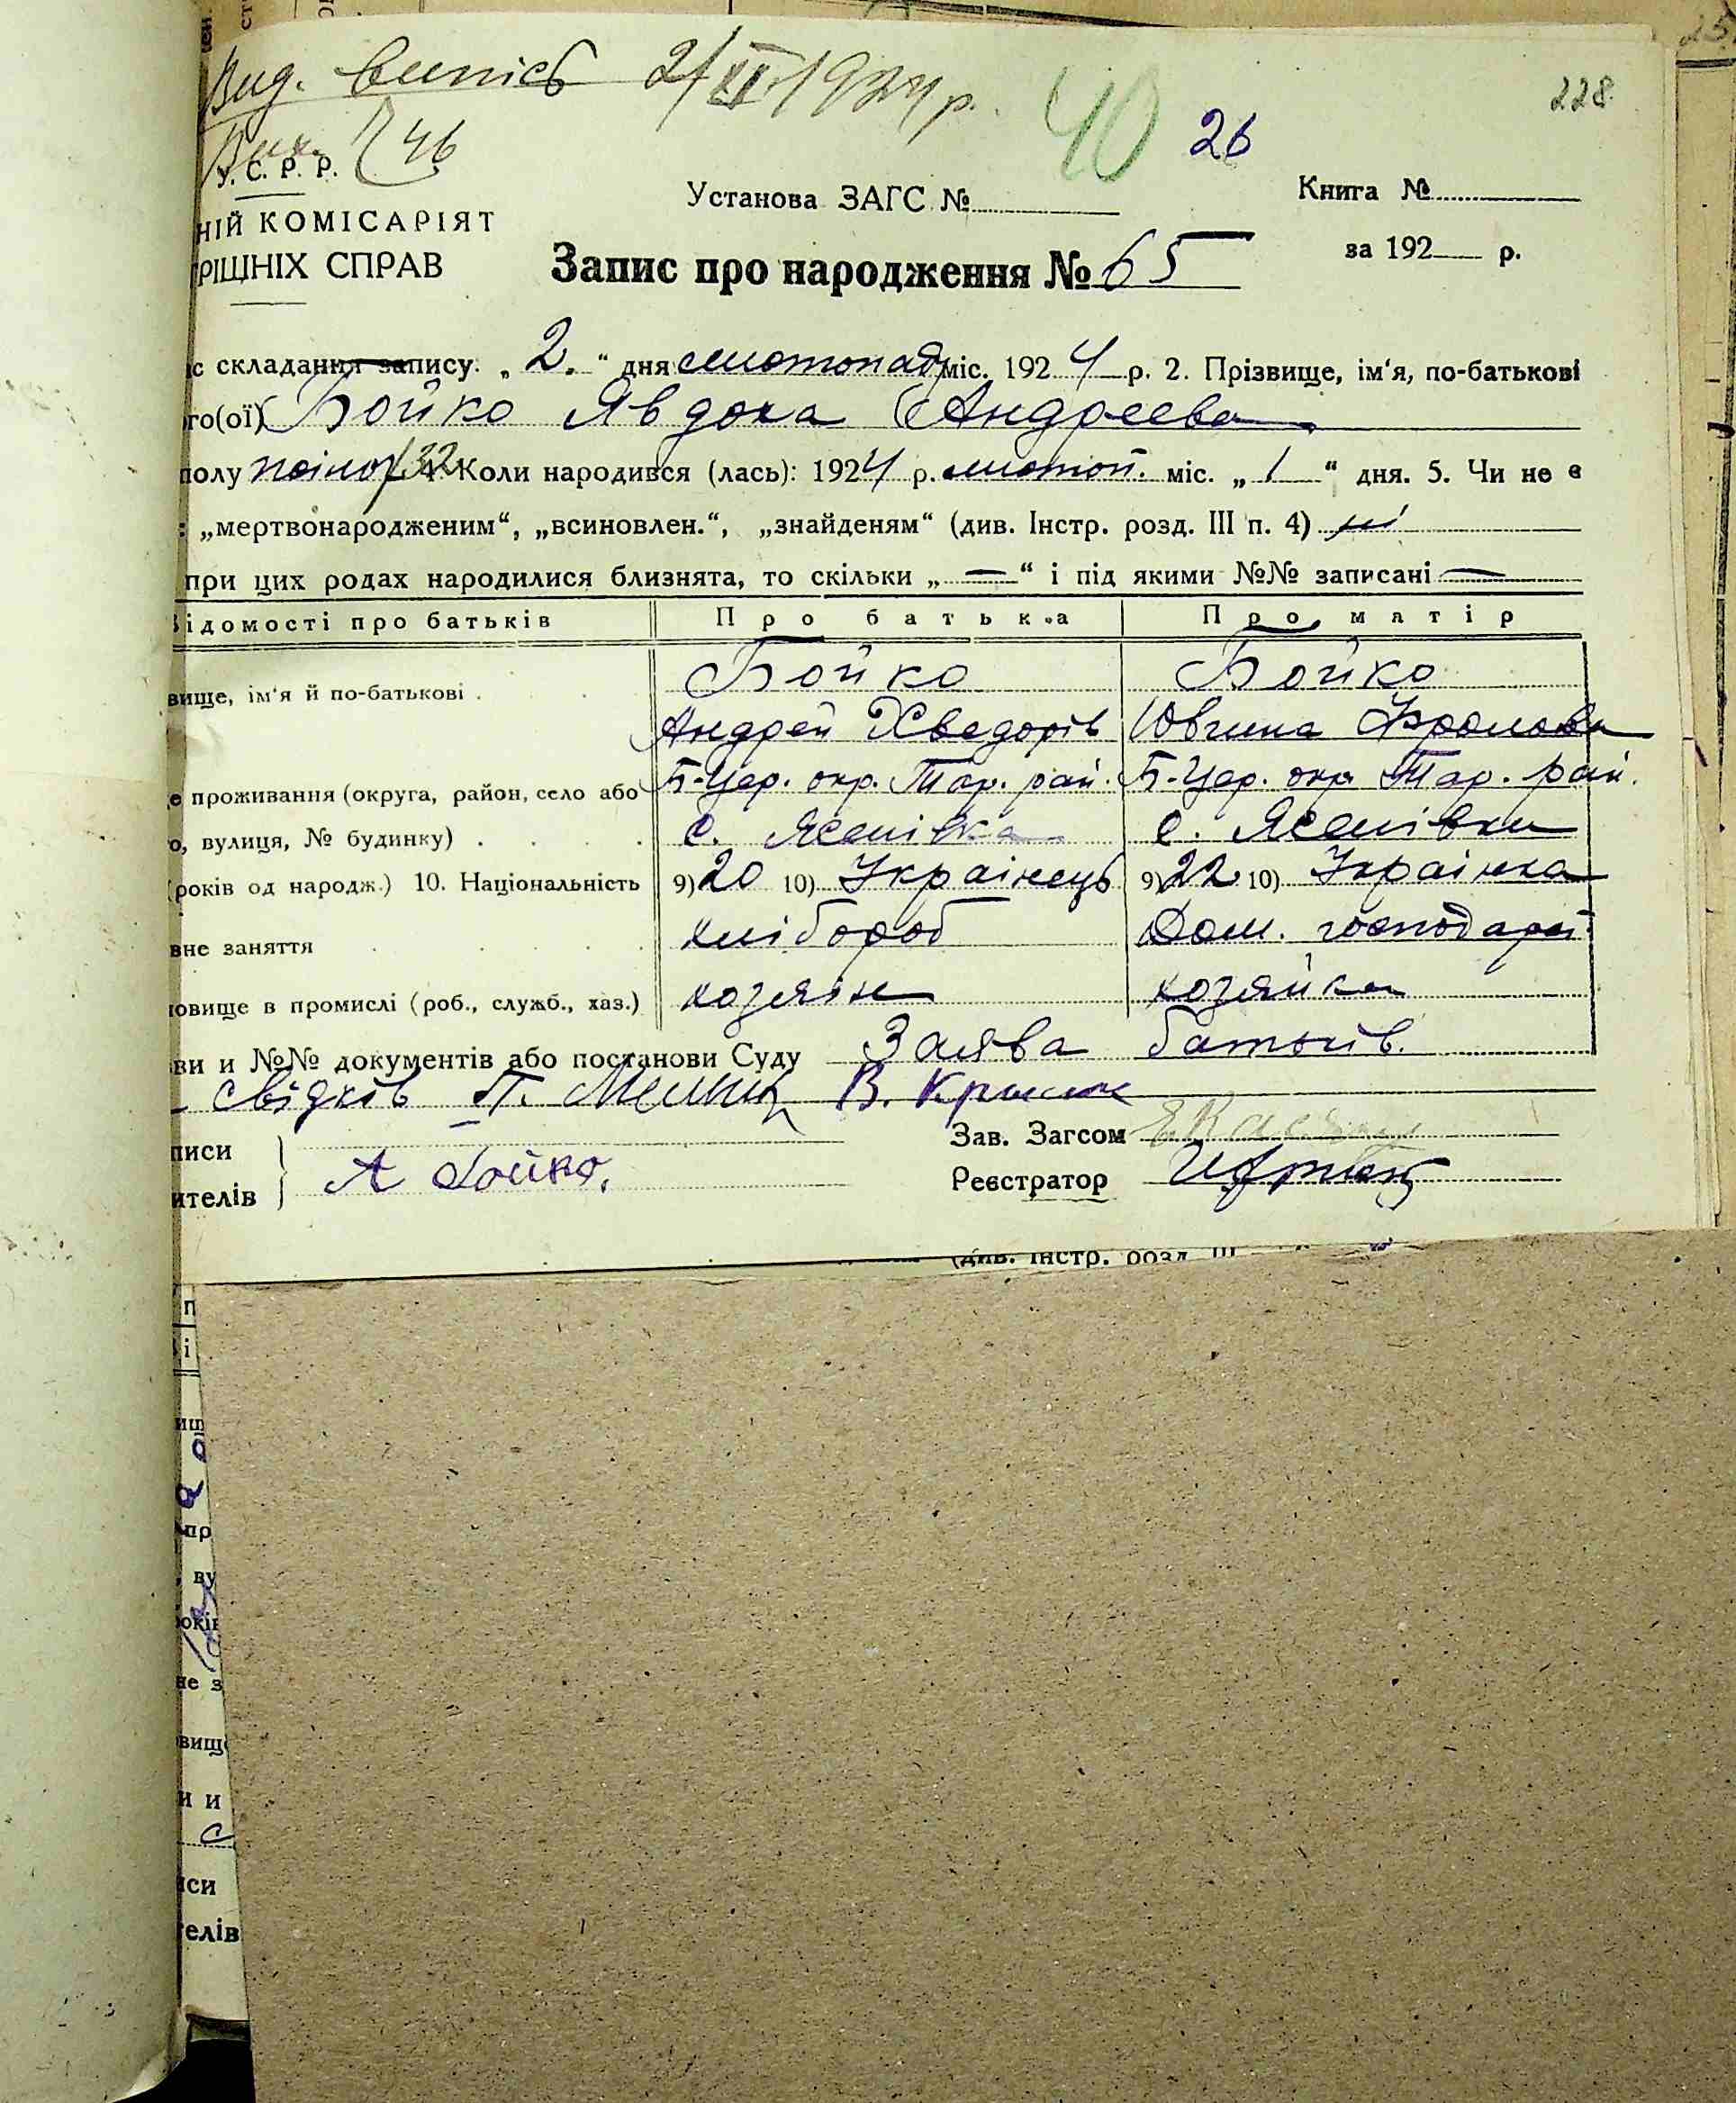 Вид. випісь 2/XI 1924 р.
228
40 26
Вих. 46
У. С. Р. Р.
Установа ЗАГС № Книга №
НІЙ КОМІСАРІЯТ
РІШНІХ СПРАВ
Запис про народження № 65
за 192 р.
с складання запису: „ 2. “ дня листопада міс. 1924 р. 2. Прізвище, ім'я, по-батькові
го(ої) Бойко Явдоха Андреева
полу жіноч 32 4. Коли народився (лась): 1924 р. листоп. міс. „ 1 “ дня. 5. Чи не є
: „мертвонародженим“, „всиновлен.“, „знайденям“ (див. Інстр. розд. III п. 4) ні
при цих родах народилися близнята, то скільки „ — “ і під якими №№ записані —
ідомості про батьків Про батька Про матір
вище, ім'я й по-батькові . Бойко Бойко
Андрей Хведорів Ювгина Фролова
е проживання (округа, район, село або Б-Цер. окр. Тар. рай. Б-Цер. окр. Тар. рай.
о, вулиця, № будинку) . . . . с. Ясенівка с. Ясенівки
(років од народж.) 10. Національність 9) 20 10) Українець 9) 22 10) Українка
вне заняття . . . . хлібороб Дом. господарст.
новище в промислі (роб., служб., хаз.) хозяїн хозяйка
ви и №№ документів або постанови Суду Заява батьків.
свідків П. Мельник В.
писи
ителів } А Бойко.
Зав. Загсом
Реєстратор
(див. Інстр. розд. III
п
і
иш
пр
ву
оків
не з
вище
и и
с
иси
телів